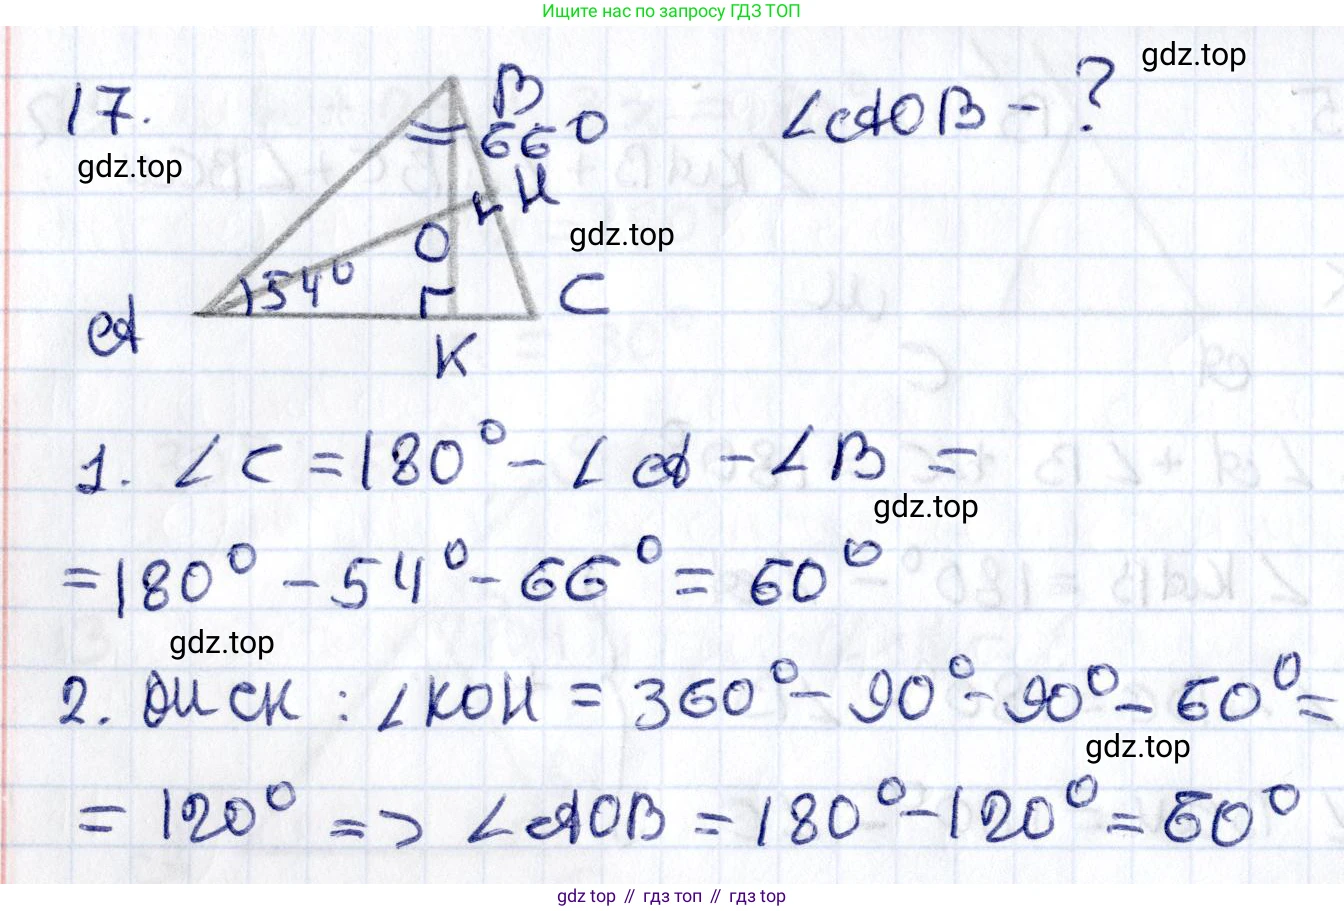 Ищите нас по запросу ГДЗ ТОП
gdz.top
17.
gdz.top
B
66°
∠AOB - ?
H
O
gdz.top
54°
C
A
K
1. ∠C = 180° - ∠A - ∠B =
gdz.top
= 180° - 54° - 66° = 60°
gdz.top
2. OHCK : ∠KOH = 360° - 90° - 90° - 60° =
gdz.top
= 120° => ∠AOB = 180° - 120° = 60°
gdz top // гдз топ // гдз top